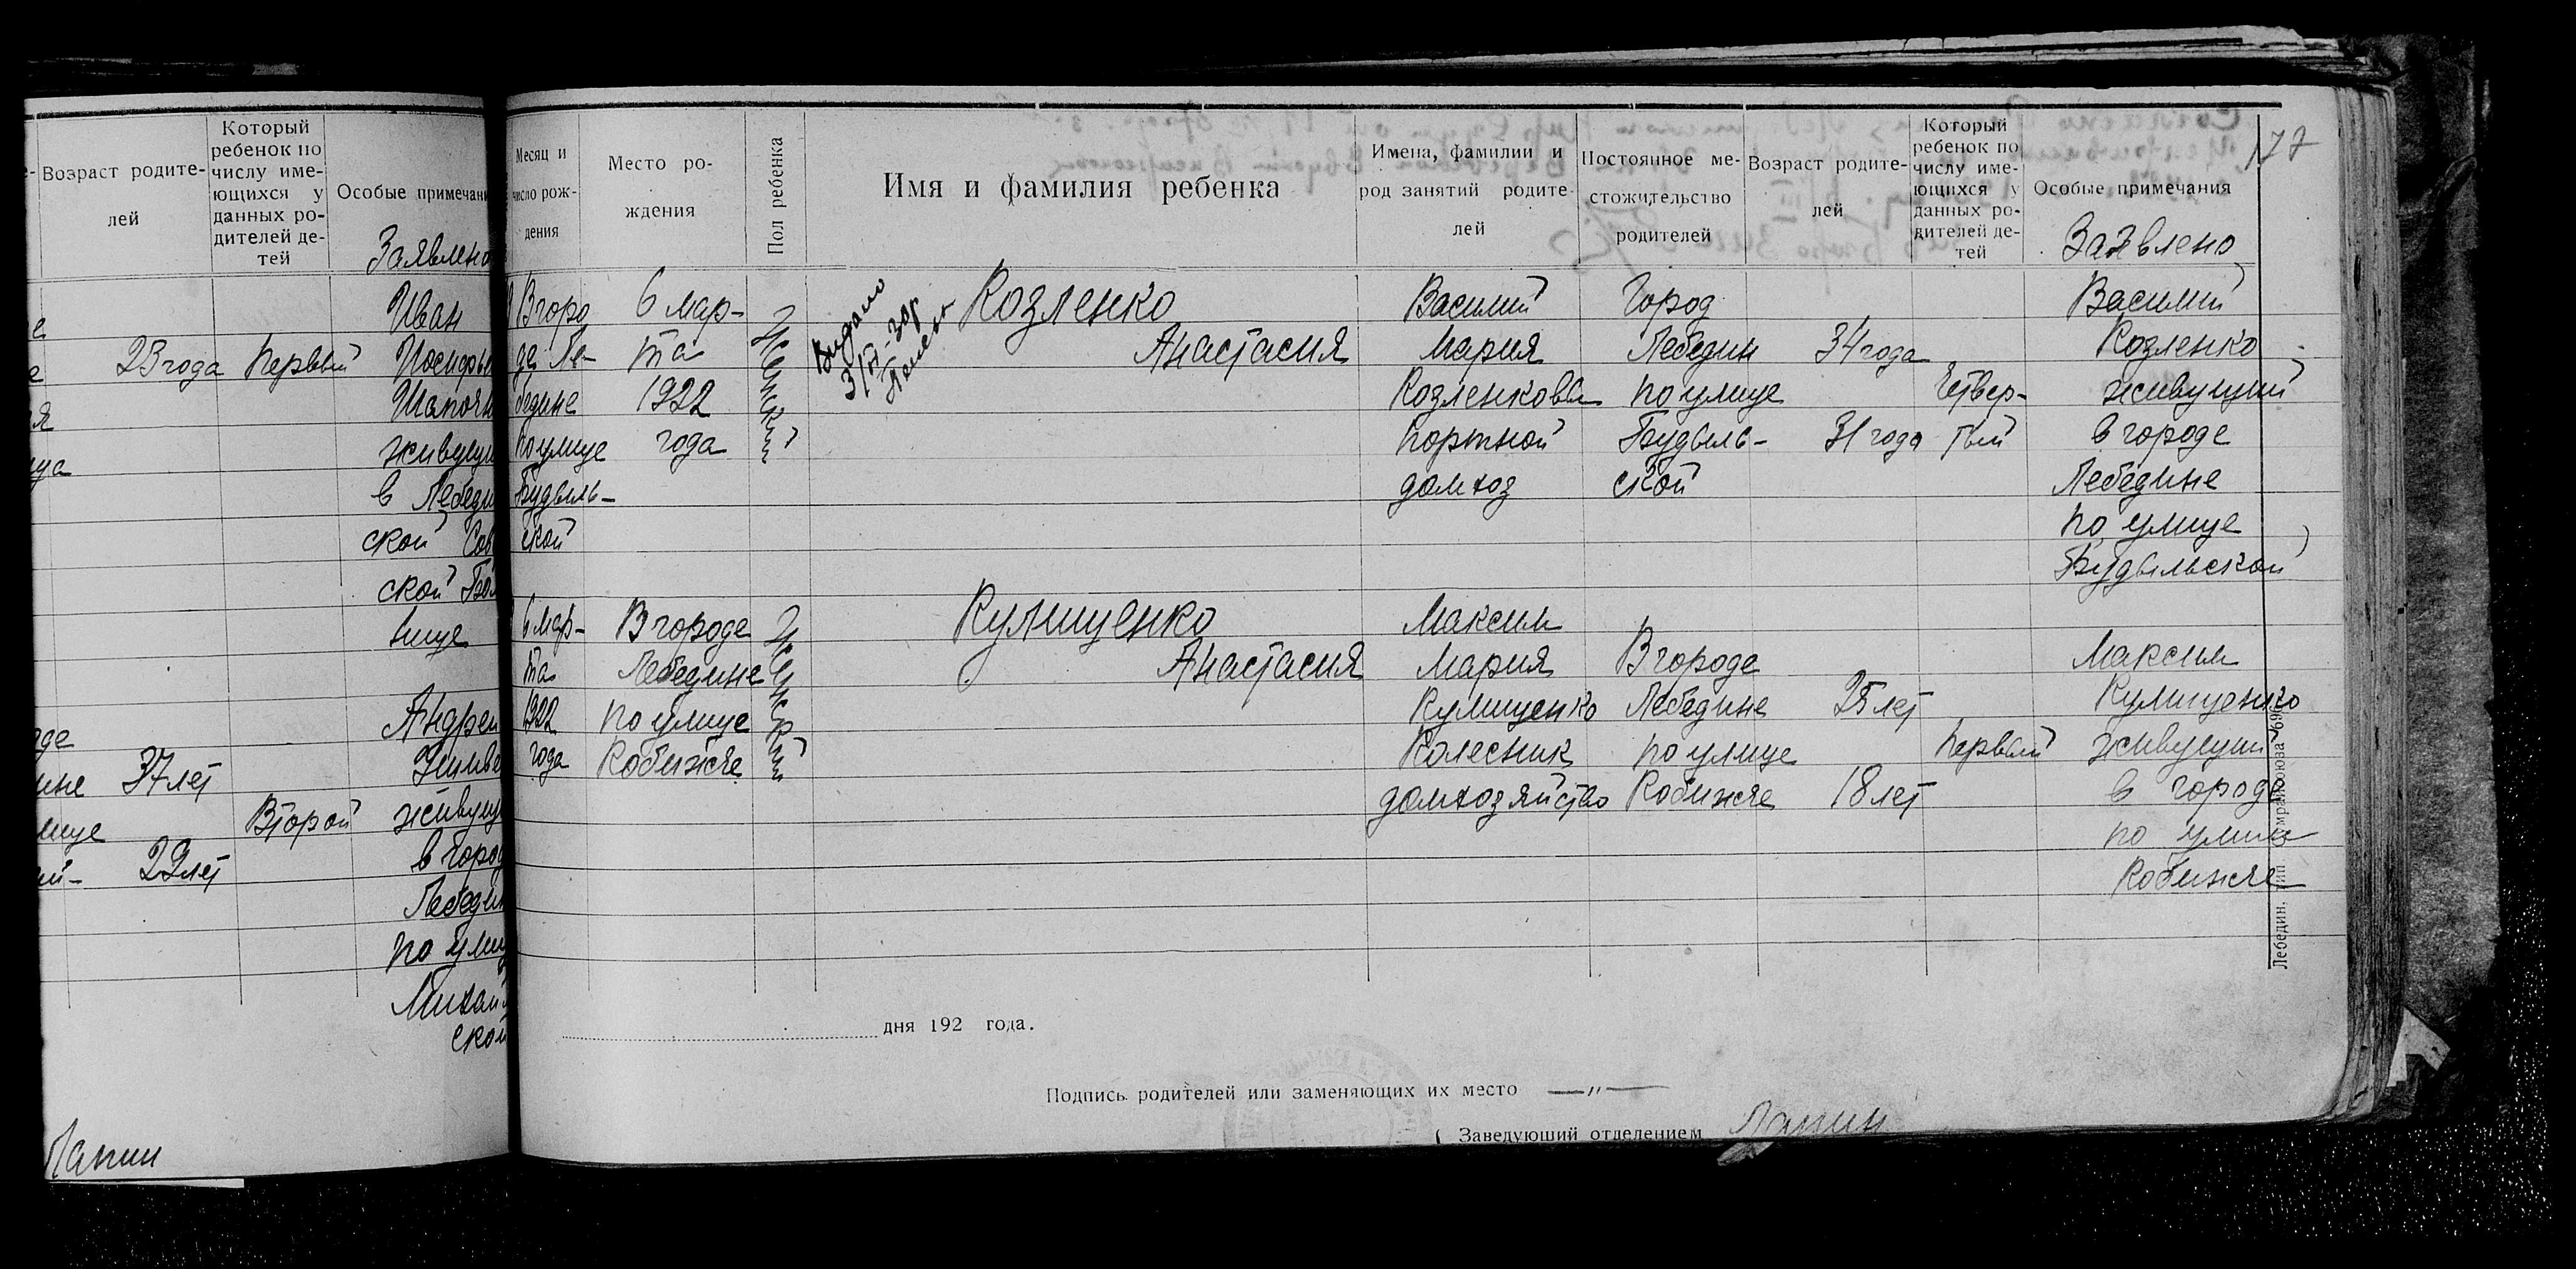 Возраст родите-
лей
Который
ребенок по
числу име-
ющихся у
данных ро-
дителей де-
тей
Особые примечан
Заявлено
23 года
первый
Иван
живущ
в Лебеди
ской
ской
вище
37 лет
22 лет
Второй
Андрей
живущ
в город
Лебедин
по улиц
Михай
ской
Лапин
177
Месяц и
число рож-
дения
Место ро-
ждения
Пол ребенка
Имя и фамилия ребенка
Имена, фамилии и
род занятий родите-
лей
Постоянное ме-
стожительство
родителей
Возраст родите-
лей
Который
ребенок по
числу име-
ющихся у
данных ро-
дителей де-
тей
Особые примечания
Заявлено
В горо
де Ле-
бедине
по улице
Будыль-
ской
6 мар-
та
1922
года
Женский
Видано
Козленко
Анастасия
Василий
Мария
Козленковы
портной
домхоз
Город
Лебедин
по улице
Будыль-
ской
34 года
31 года
Четвер-
тый
Василий
Козленко
живущий
в городе
Лебедине
по улице
Будыльской
6 мар-
та
1922
года
В городе
Лебедине
по улице
Кобижче
Женский
Кулищенко
Анастасия
Максим
Мария
Кулищенко
Колесник
домхозяйство
В городе
Лебедине
по улице
Кобижче
25 лет
18 лет
первый
Максим
Кулищенко
живущий
в городе
по улице
Кобижче
дня 192 года.
Подпись родителей или заменяющих их место —"—
Заведующий отделением Лапин